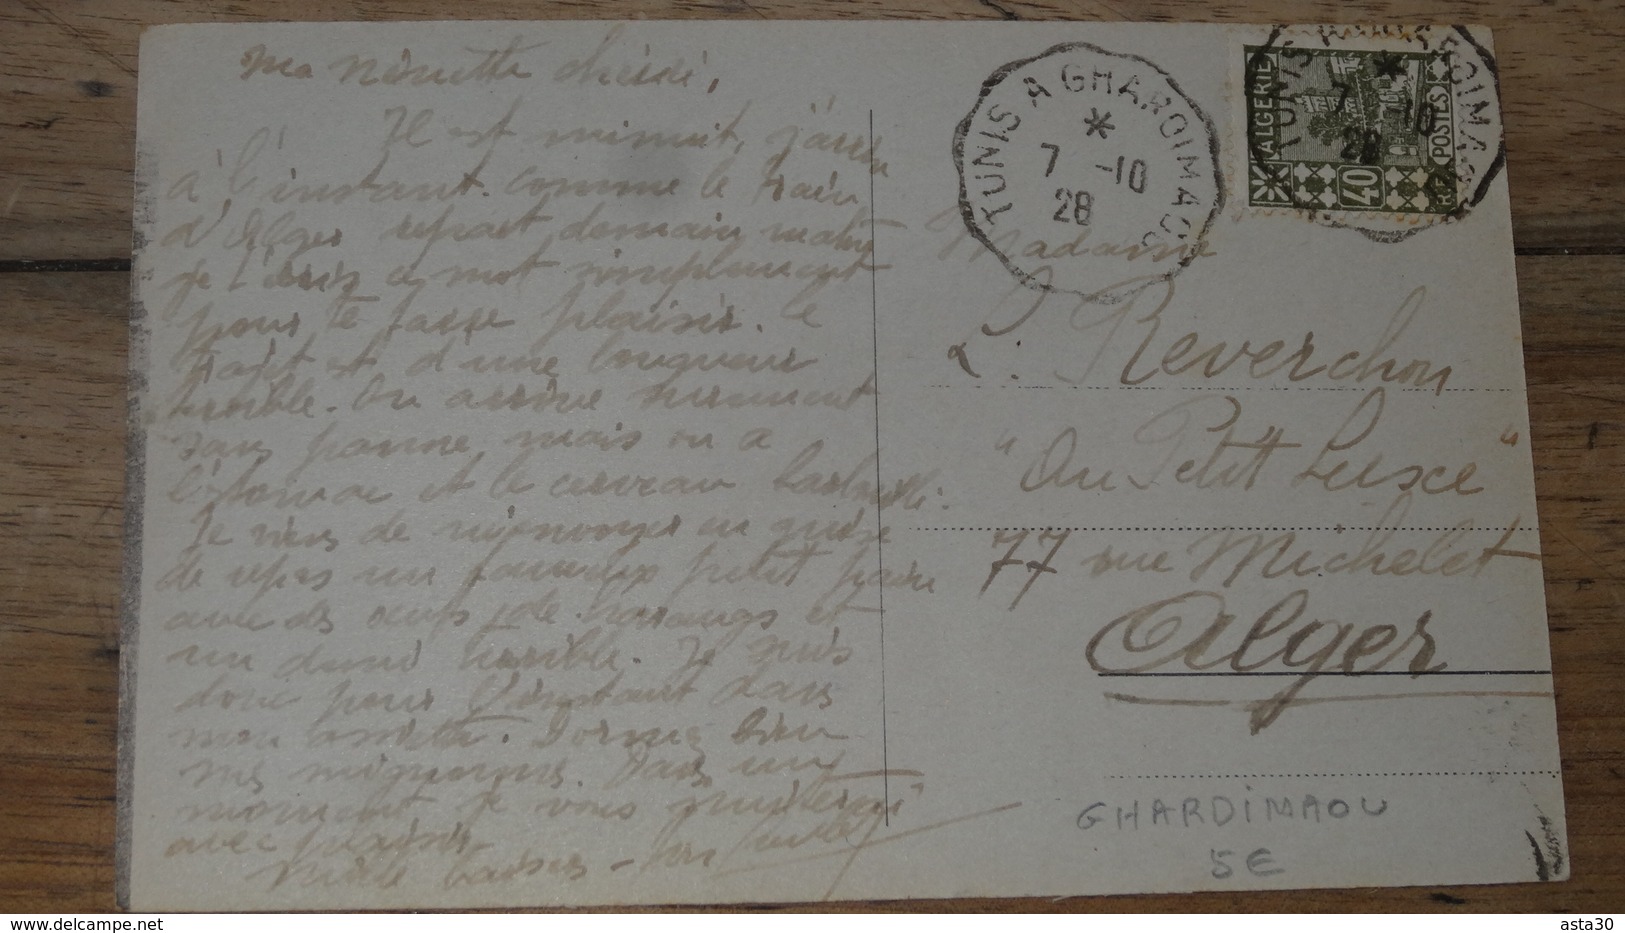 Ma Nénette chérie,
Il est minuit, j'arrive
à l'instant. Comme le train
d'Alger repart demain matin
je t'écris ce mot simplement
pour te fasse plaisir. Le
trajet est d'une longueur
terrible. On arrive surement
sans panne mais on a
l'estomac et le cerveau
Je viens de en guise
de repas un fameux petit pain
avec des oeufs, de harengs et
un demi horrible. Je suis
donc pour l'instant dans
mon assiette. Dormez bien
mes mignonnes. Dans un
moment je vous
avec plaisir
Mille baisers -
TUNIS A GHARDIMAOU
7 -10
28
ALGERIE
POSTES
40
RF
TUNIS A GHARDIMAOU
7 -10
28
Madame
L. Reverchon
"Au Petit Luxe"
77 rue Michelet
Alger
GHARDIMAOU
5€
asta30
delcampe.net